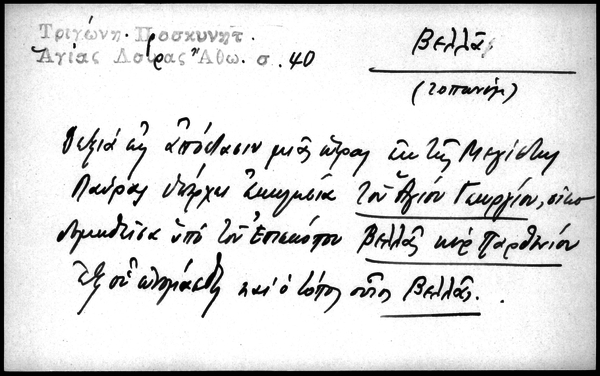 Τριγώνη. Προσκυνητ.
Ἁγίας Λαύρας Ἄθω. σ. 40
Βελλᾶς
(τοπωνύμ)
δεξιὰ εἰς ἀπόστασιν μιᾶς ὥρας ἐκ τῆς Μεγίστης
Λαύρας ὑπάρχει ἐκκλησία τοῦ Ἁγίου Γεωργίου, οἰκο
δομηθεῖσα ὑπὸ τοῦ Ἐπισκόπου Βελλᾶς κὺρ Παρθενίου
ἐξ οὗ ὠνομάσθη καὶ ὁ τόπος οὗτος Βελλᾶς.